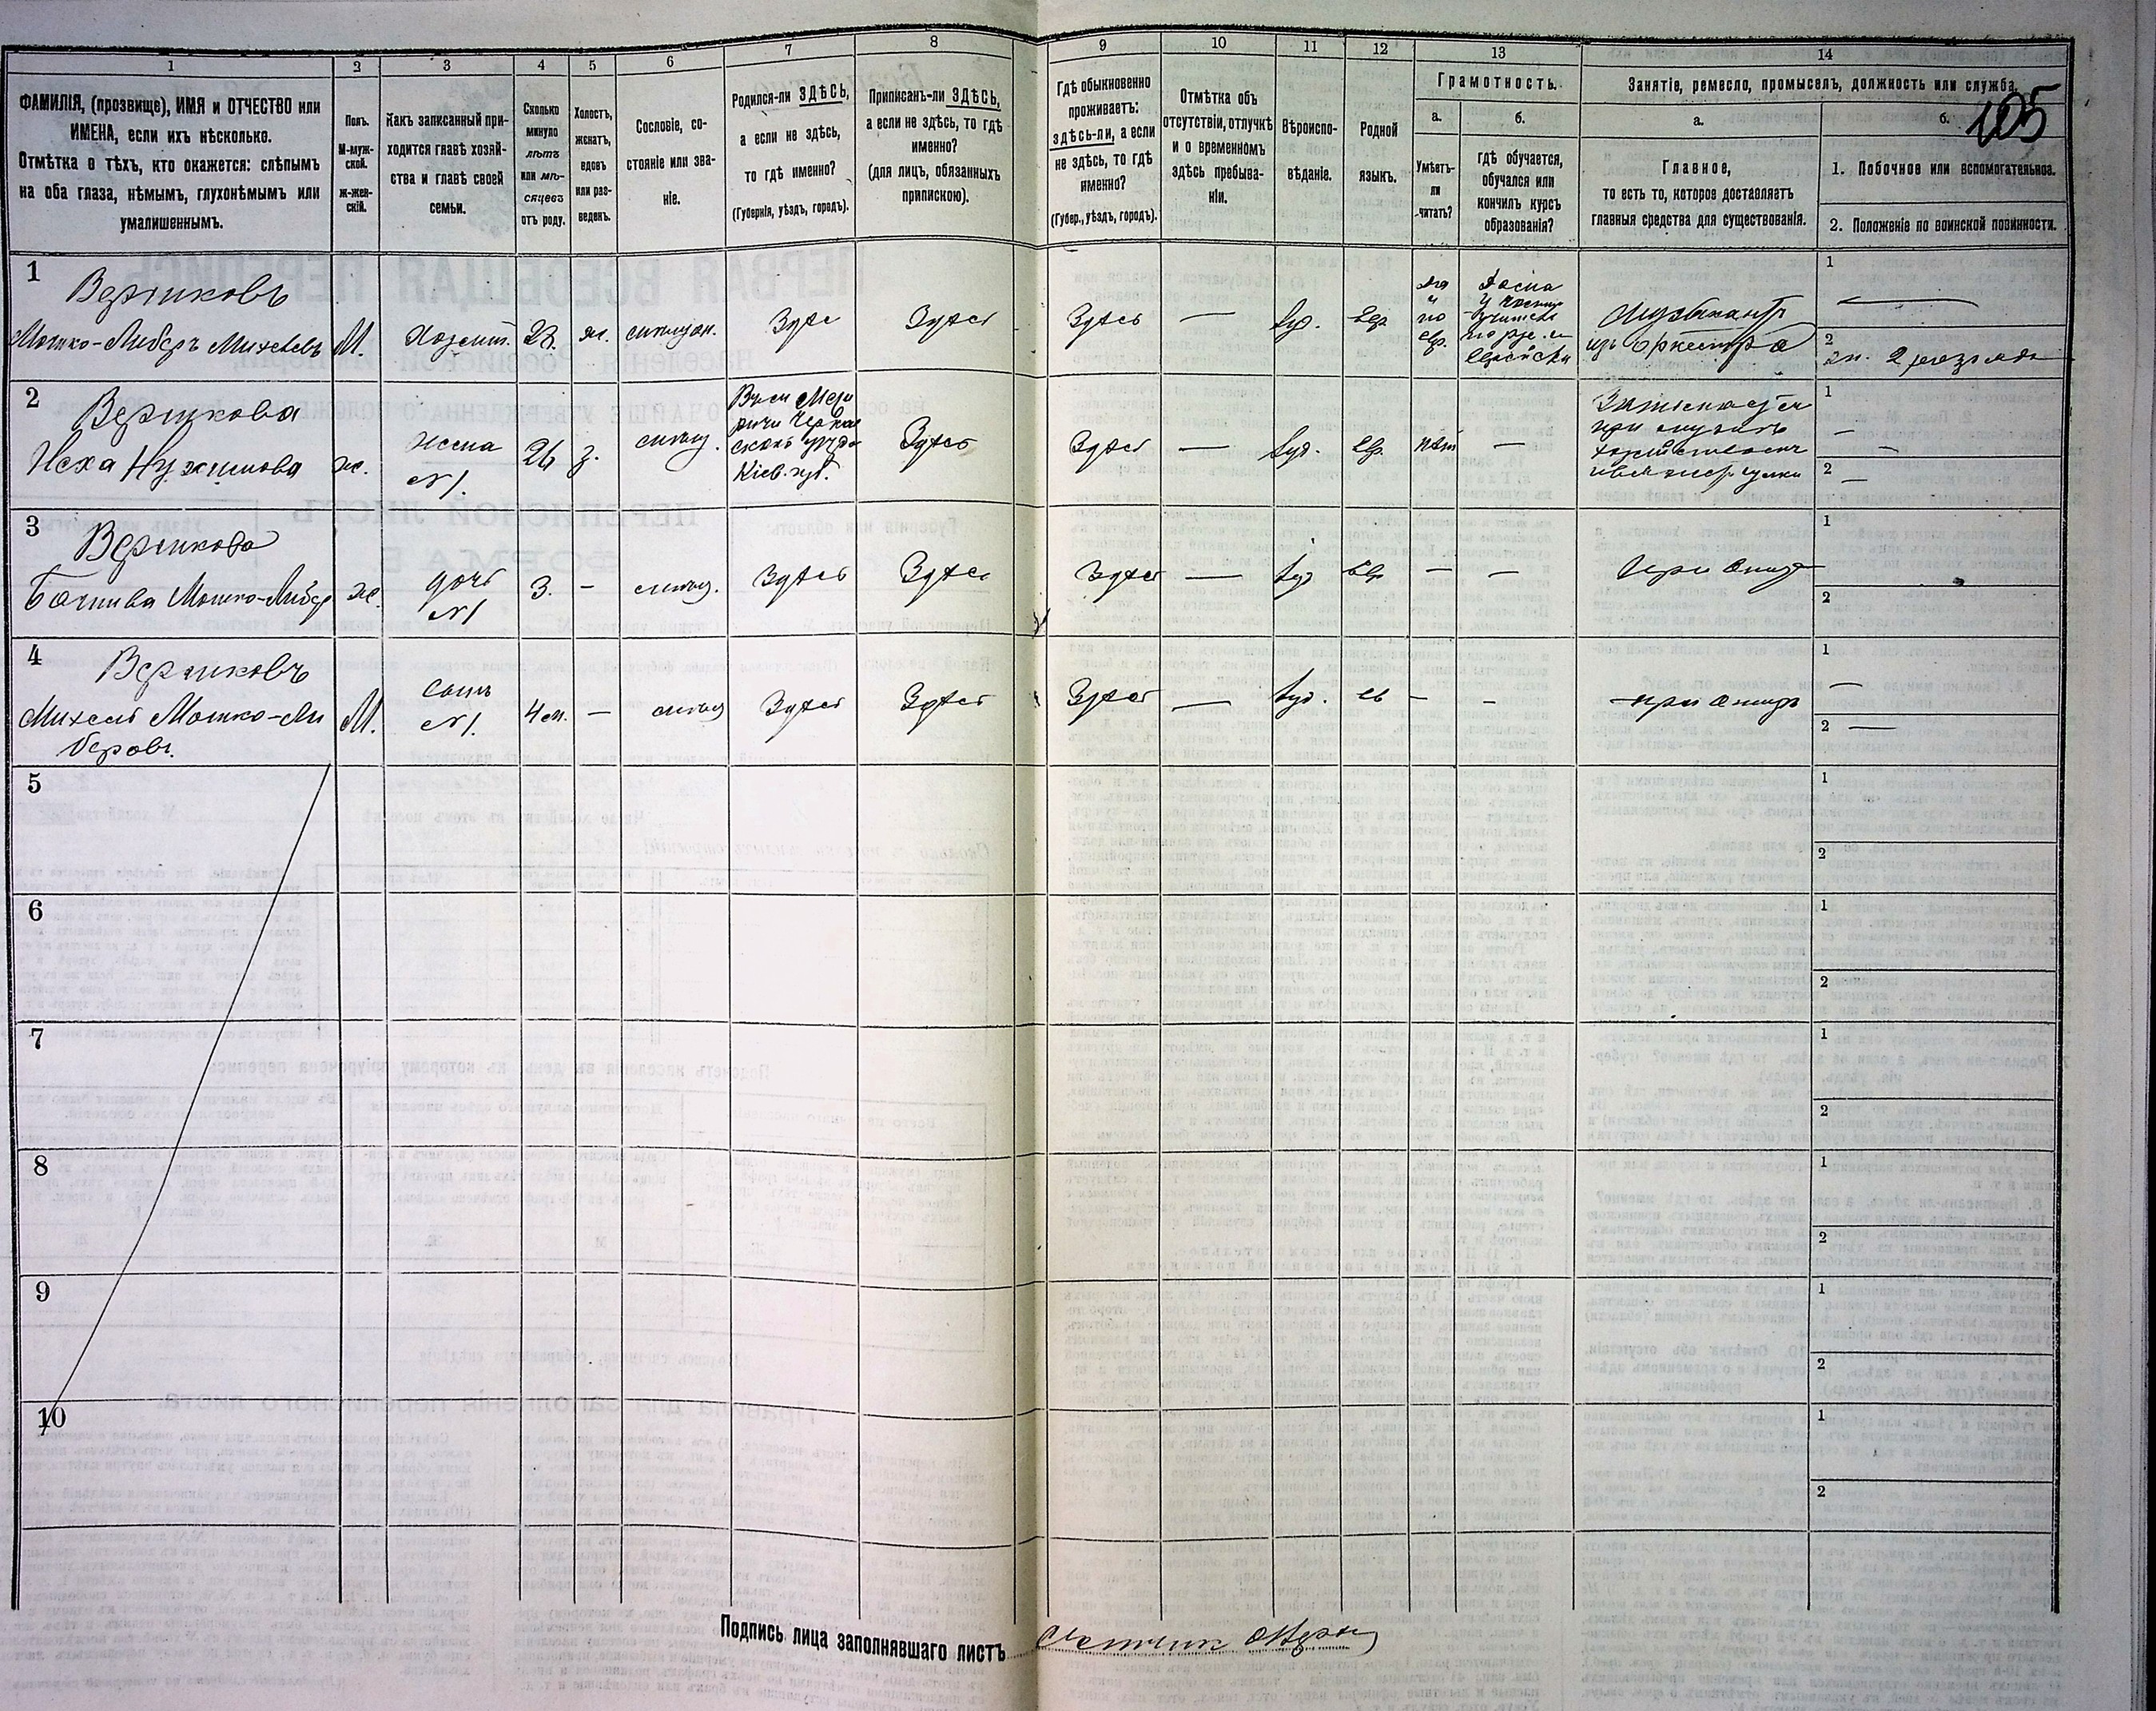 1 2 3 4 5 6 7 8 9 10 11 12 13 14
ФАМИЛІЯ, (прозвище), ИМЯ и ОТЧЕСТВО или
ИМЕНА, если ихъ нѣсколько.
Отмѣтка о тѣхъ, кто окажется: слѣпымъ
на оба глаза, нѣмымъ, глухонѣмымъ или
умалишеннымъ.
Полъ.
М-муж-
ской.
Ж-жен-
скій.
Какъ записанный при-
ходится главѣ хозяй-
ства и главѣ своей
семьи.
Сколько
минуло
лѣтъ
или мѣ-
сяцевъ
отъ роду.
Холостъ,
женатъ,
вдовъ
или раз-
веденъ.
Сословіе, со-
стояніе или зва-
ніе.
Родился-ли ЗДѢСЬ,
а если не здѣсь,
то гдѣ именно?
(Губернія, уѣздъ, городъ).
Приписанъ-ли ЗДѢСЬ,
а если не здѣсь, то гдѣ
именно?
(для лицъ, обязанныхъ
припискою).
Гдѣ обыкновенно
проживаетъ:
здѣсь-ли, а если
не здѣсь, то гдѣ
именно?
(Губер., уѣздъ, городъ).
Отмѣтка объ
отсутствіи, отлучкѣ
и о временномъ
здѣсь пребыва-
ніи.
Вѣроиспо-
вѣданіе.
Родной
языкъ.
Грамотность.
а.
Умѣетъ-
ли
читать?
б.
гдѣ обучается,
обучался или
кончилъ курсъ
образованія?
Занятіе, ремесло, промыселъ, должность или служба.
105
а.
Главное,
то есть то, которое доставляетъ
главныя средства для существованія.
б.
1. Побочное или вспомогательное.
2. Положеніе по воинской повинности.
1
Вершковъ
Мошко-Либеръ Михелевъ М. Хозяинъ 28. ж. Здѣсь Здѣсь Здѣсь — Іуд. Евр.
да
и
по
евр.
Музыкантъ
изъ оркестра
1 —
2
2 разряда
2
Вершкова
Неха Нухимова ж.
жена
№ 1.
26 з.
Кіев. губ.
Здѣсь Здѣсь — Іуд. Евр. нѣтъ —
1 —
2 —
3
Вершкова
Мошко-Либер ж.
дочь
№ 1
3. — Здѣсь Здѣсь Здѣсь — Іуд. Евр. — —
при отцѣ
1
2
4
Вершковъ
Михель Мошко-Ли
беровъ.
М.
сынъ
№ 1.
4 м. — Здѣсь Здѣсь Здѣсь — Іуд. ев — —
при отцѣ
1 —
2 —
5
1
2
6
1
2
7
1
2
8
1
2
9
1
2
10
1
2
Подпись лица заполнявшаго листъ Счетчик